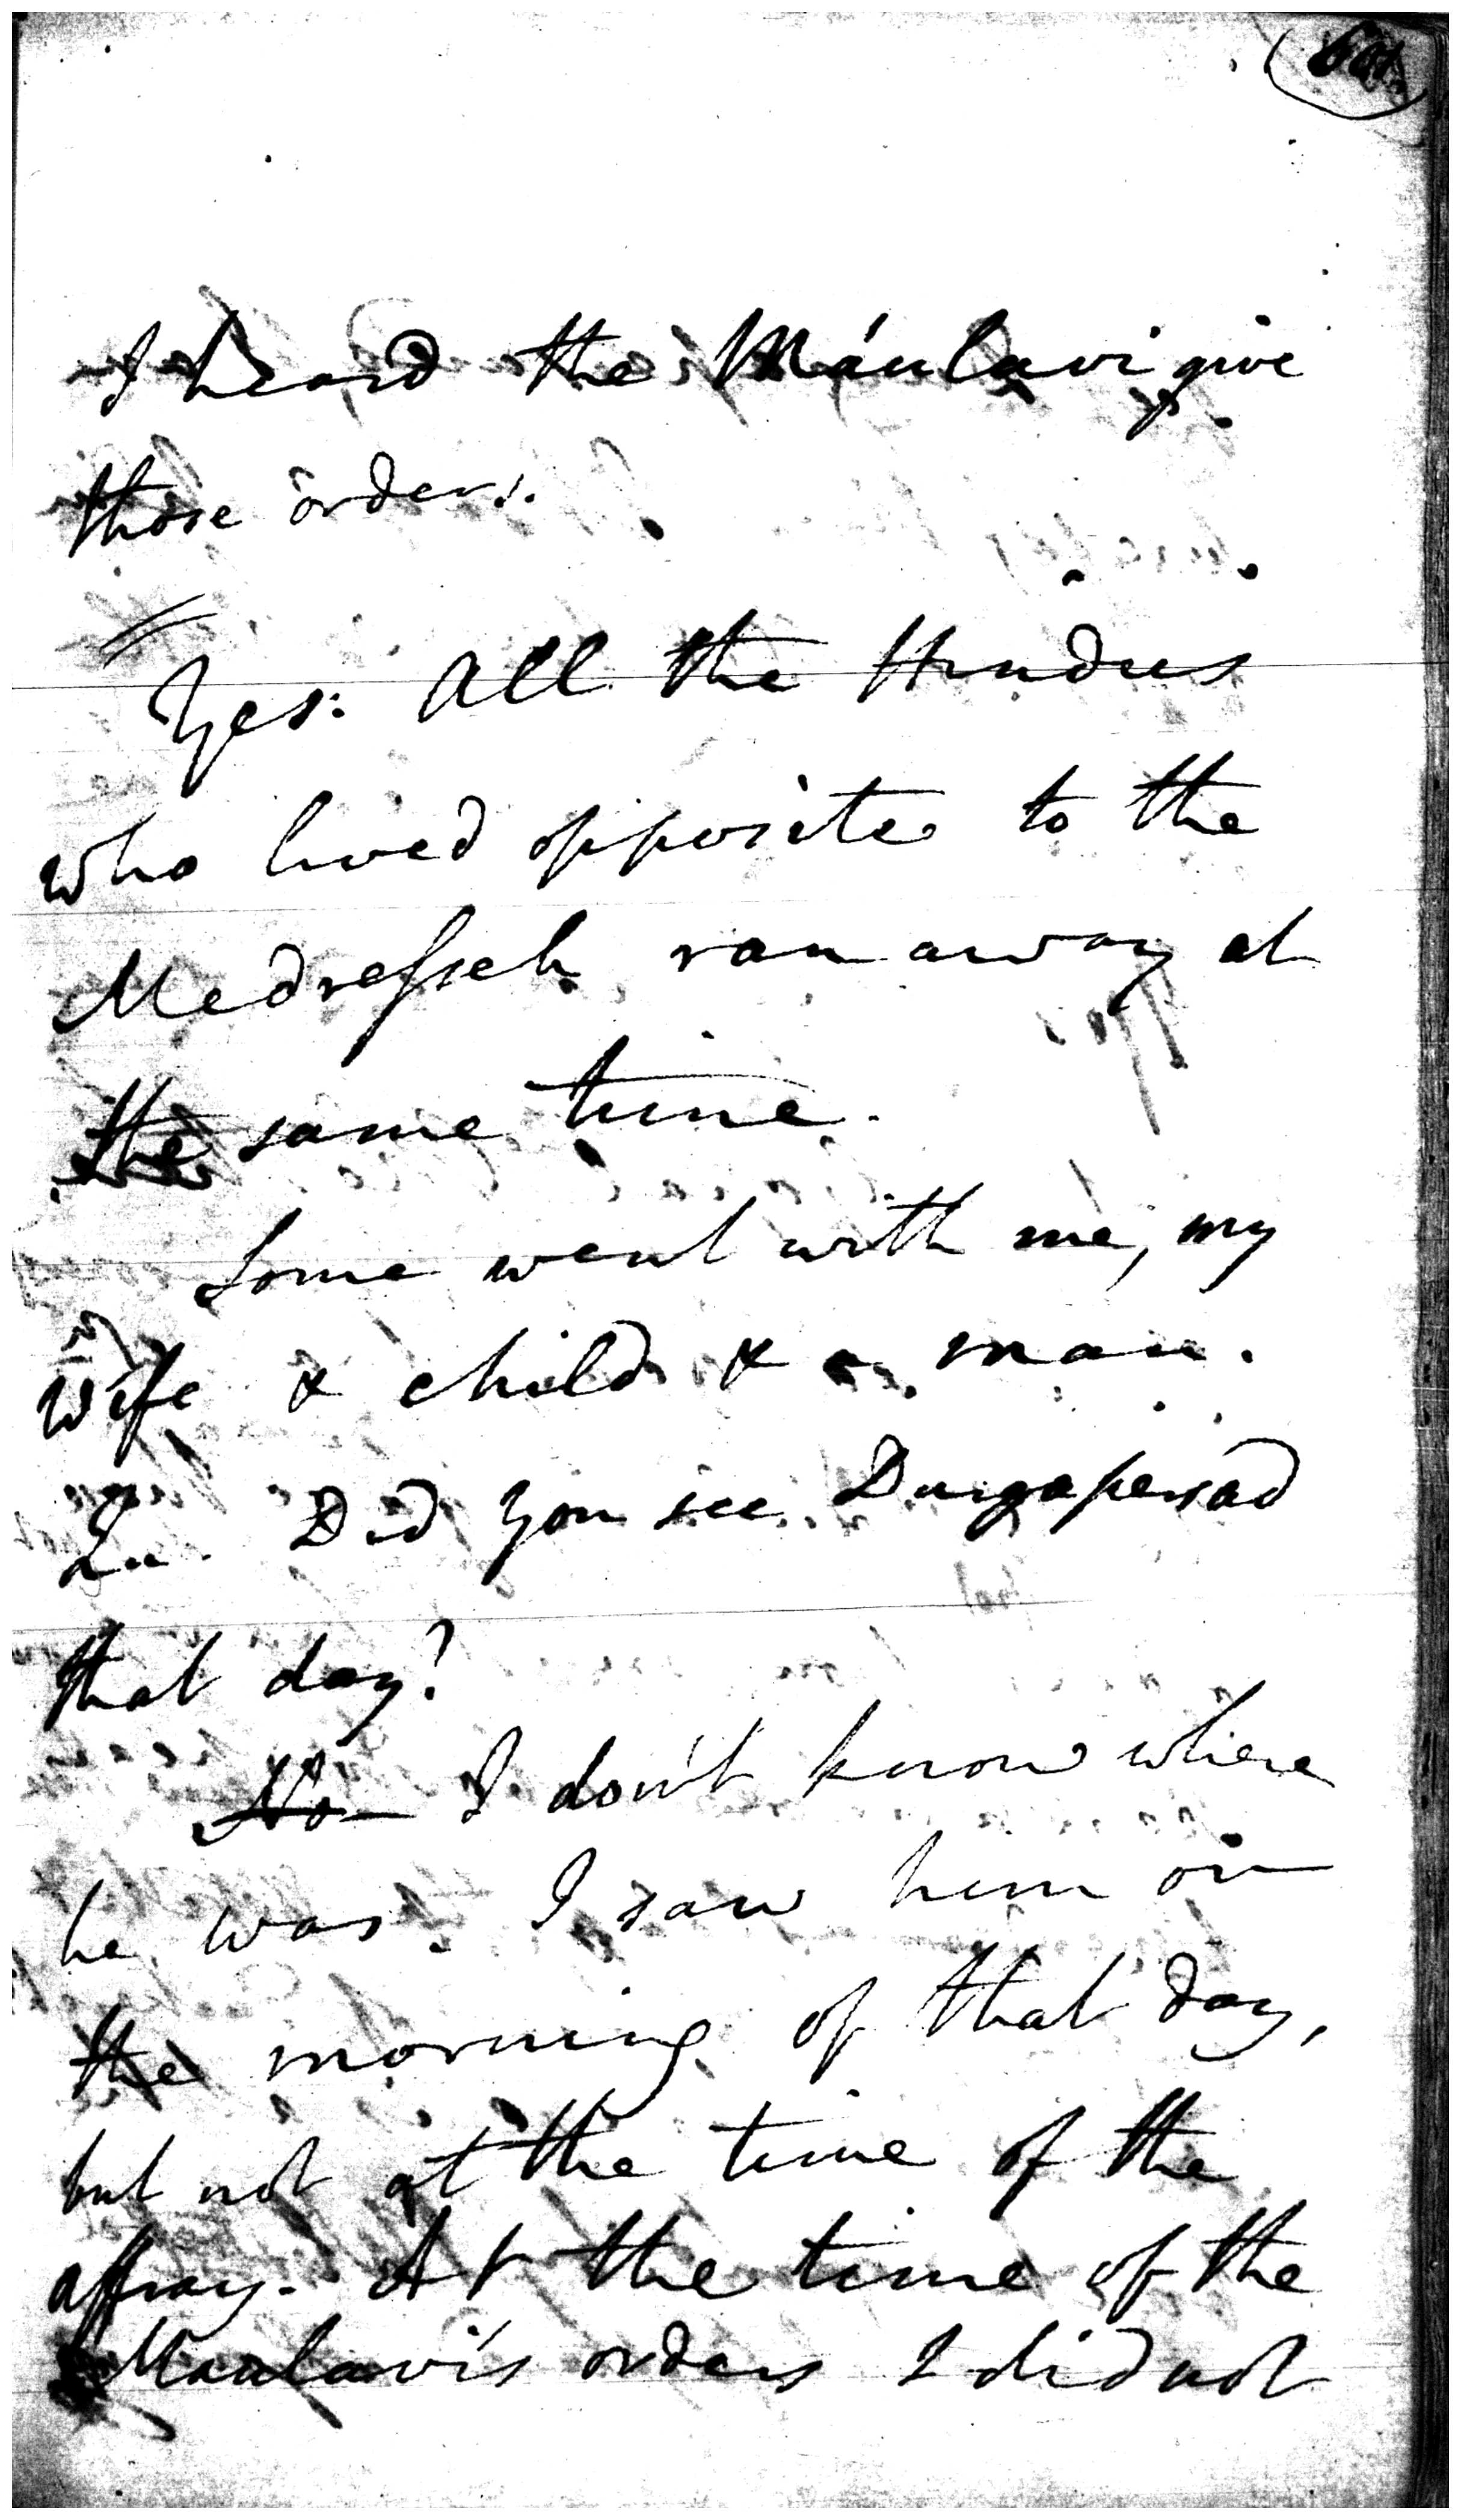 I heard the Máulavi give
those orders.
Yes: All the Hindus
who lived opposite to the
Medresseh ran away at
the same time.
Some went with me, my
wife & child & a man.
Qu. Did you see Durgapersad
that day?
No— I don't know where
he was. I saw him on
the morning of that day,
but not at the time of the
affray. At the time of the
Maulavi's orders I did not